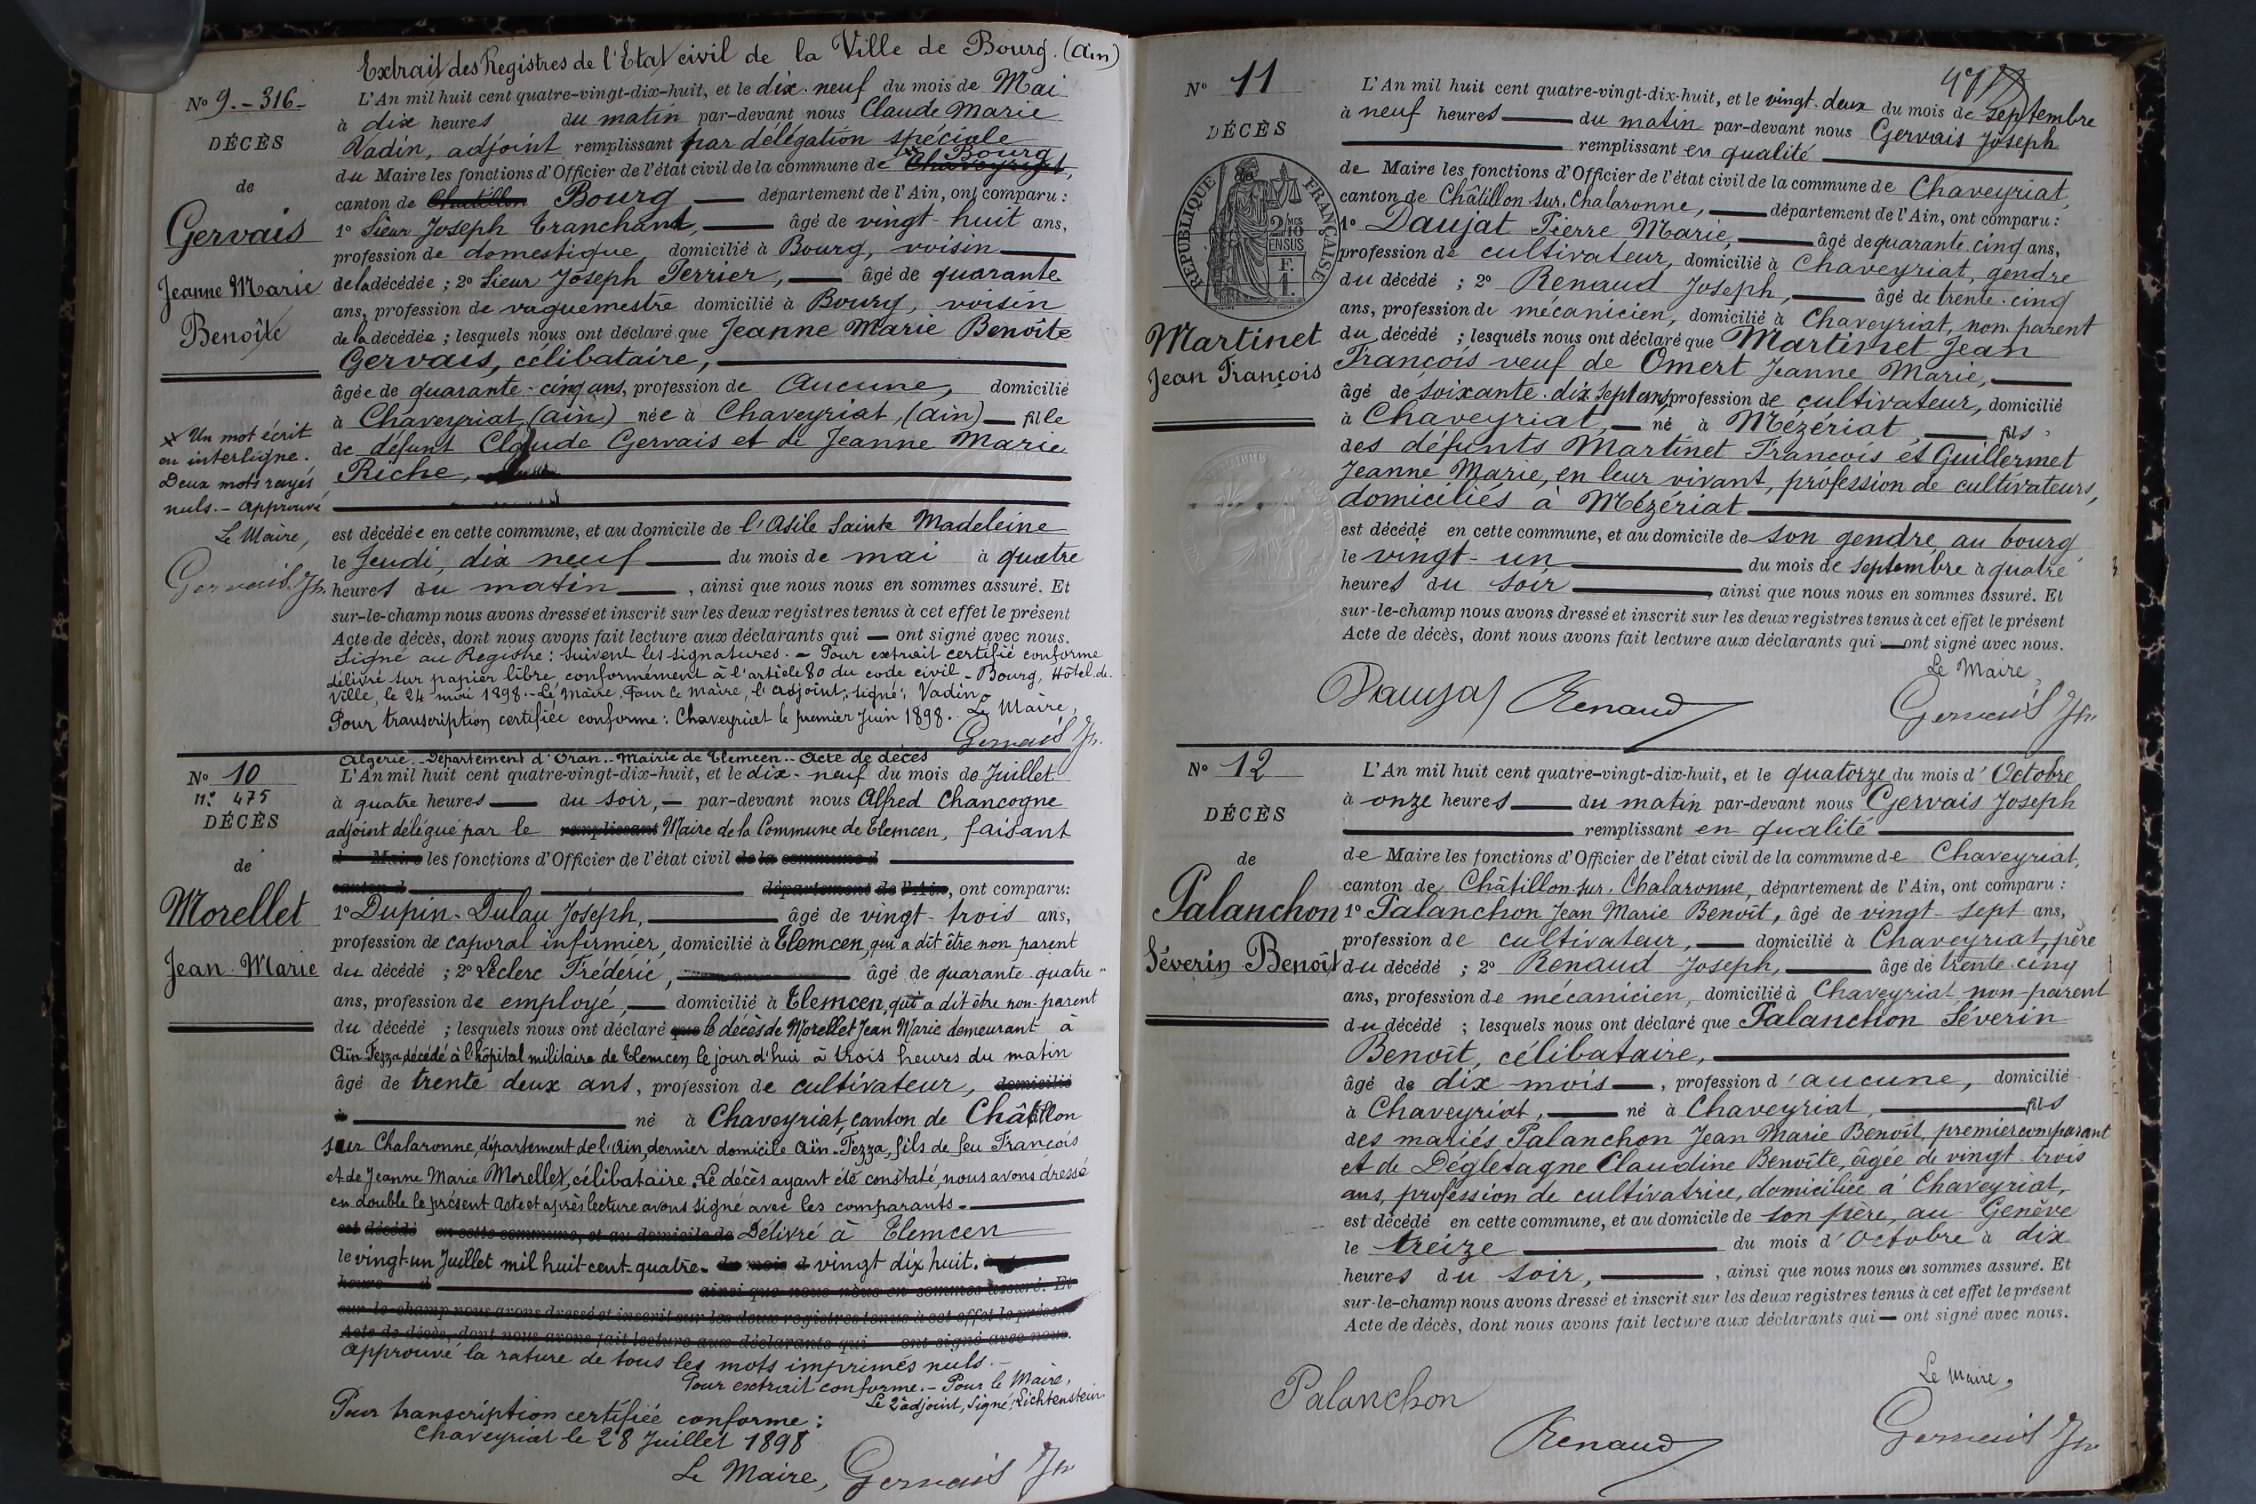 Extrait des Registres de l'Etat civil de la Ville de Bourg. (Ain)
N° 9. - 316 -
DÉCÈS
de
Gervais
Jeanne Marie
Benoîte
× Un mot écrit
en interligne.
Deux mots rayés
nuls. - Approuvé
Le Maire,
Gervais Jh
L'An mil huit cent quatre-vingt-dix-huit, et le dix-neuf du mois de Mai
à dix heures du matin par-devant nous Claude Marie
Vadin, adjoint remplissant par délégation spéciale
du Maire les fonctions d'Officier de l'état civil de la commune de × Bourg Chaveyriat,
canton de Chatillon Bourg — département de l'Ain, ont comparu :
1° Sieur Joseph Tranchant, — âgé de vingt-huit ans,
profession de domestique, domicilié à Bourg, voisin
de la décédée ; 2° Sieur Joseph Perrier, — âgé de quarante
ans, profession de vaguemestre domicilié à Bourg, voisin
de la décédée ; lesquels nous ont déclaré que Jeanne Marie Benoîte
Gervais, célibataire,
âgée de quarante-cinq ans, profession de Aucune, domicilié
à Chaveyriat, (Ain) née à Chaveyriat, (Ain) — fille
de défunt Claude Gervais et de Jeanne Marie
Riche,
est décédée en cette commune, et au domicile de l'Asile Sainte Madeleine
le Jeudi, dix neuf — du mois de mai à quatre
heures du matin —, ainsi que nous nous en sommes assuré. Et
sur-le-champ nous avons dressé et inscrit sur les deux registres tenus à cet effet le présent
Acte de décès, dont nous avons fait lecture aux déclarants qui — ont signé avec nous.
Signé au Registre : suivent les signatures. - Pour extrait certifié conforme
délivré sur papier libre, conformément à l'article 80 du code civil - Bourg, Hôtel-de-
Ville, le 24 mai 1898. - Le Maire, Pour le maire, l'adjoint, signé : Vadin -
Pour transcription certifiée conforme : Chaveyriat le premier Juin 1898. Le Maire,
Gervais Jh.
Algérie. - Département d'Oran. - Mairie de Tlemcen. - Acte de décès
N° 10
n° 475
DÉCÈS
de
Morellet
Jean Marie
L'An mil huit cent quatre-vingt-dix-huit, et le dix-neuf du mois de Juillet
à quatre heures — du soir, — par-devant nous Alfred Chancogne
adjoint délégué par le remplissant Maire de la Commune de Tlemcen, faisant
d Maire les fonctions d'Officier de l'état civil de la commune d
canton d département de l'Ain, ont comparu:
1° Dupin-Dulau Joseph, — âgé de vingt-trois ans,
profession de caporal infirmier, domicilié à Tlemcen, qui a dit être non parent
du décédé ; 2° Leclerc Frédéric, — âgé de quarante-quatre
ans, profession de employé, — domicilié à Tlemcen, qui a dit être non-parent
du décédé ; lesquels nous ont déclaré que le décès de Morellet Jean Marie demeurant à
Aïn-Fezza, décédé à l'hôpital militaire de Tlemcen, le jour d'hui à trois heures du matin
âgé de trente deux ans, profession de cultivateur, domicilié
à né à Chaveyriat, canton de Châtillon
sur Chalaronne, département de l'Ain, dernier domicile Aïn-Fezza, fils de feu François
et de Jeanne Marie Morellet, célibataire. Le décès ayant été constaté, nous avons dressé
en double le présent Acte et après lecture avons signé avec les comparants.
est décédé en cette commune, et au domicile de Délivré à Tlemcen
le vingt-un Juillet mil huit-cent-quatre- du mois d vingt dix huit. à
heure d ainsi que nous nous en sommes assuré. Et
sur-le-champ nous avons dressé et inscrit sur les deux registres tenus à cet effet le présent
Acte de décès, dont nous avons fait lecture aux déclarants qui ont signé avec nous.
Approuvé la rature de tous les mots imprimés nuls. -
Pour extrait conforme. - Pour le Maire,
Le 2e adjoint, Signé : Lichtenstein
Pour transcription certifiée conforme :
Chaveyriat le 28 Juillet 1898
Le Maire, Gervais Jh
N° 11
DÉCÈS
RÉPUBLIQUE FRANÇAISE
2/10 EN SUS
F. 1.
Martinet
Jean François
L'An mil huit cent quatre-vingt-dix-huit, et le vingt-deux du mois de Septembre
à neuf heures — du matin par-devant nous Gervais Joseph
— remplissant en qualité —
de Maire les fonctions d'Officier de l'état civil de la commune de Chaveyriat,
canton de Châtillon-sur-Chalaronne, — département de l'Ain, ont comparu :
1° Daujat Pierre Marie, — âgé de quarante-cinq ans,
profession de cultivateur, domicilié à Chaveyriat, gendre
du décédé ; 2° Renaud Joseph, — âgé de trente-cinq
ans, profession de mécanicien, domicilié à Chaveyriat, non-parent
du décédé ; lesquels nous ont déclaré que Martinet Jean
François veuf de Omert Jeanne Marie, —
âgé de soixante-dix-sept ans, profession de cultivateur, domicilié
à Chaveyriat, — né à Mézériat, — fils
des défunts Martinet François et Guillermet
Jeanne Marie, en leur vivant, profession de cultivateurs,
domiciliés à Mézériat —
est décédé en cette commune, et au domicile de son gendre, au bourg
le vingt-un — du mois de septembre à quatre
heures du soir — ainsi que nous nous en sommes assuré. Et
sur-le-champ nous avons dressé et inscrit sur les deux registres tenus à cet effet le présent
Acte de décès, dont nous avons fait lecture aux déclarants qui — ont signé avec nous.
Le Maire,
Daujat Renaud Gervais Jh
N° 12
DÉCÈS
de
Palanchon
Séverin Benoît
L'An mil huit cent quatre-vingt-dix-huit, et le quatorze du mois d'Octobre
à onze heures — du matin par-devant nous Gervais Joseph
— remplissant en qualité —
de Maire les fonctions d'Officier de l'état civil de la commune de Chaveyriat,
canton de Châtillon-sur-Chalaronne, département de l'Ain, ont comparu :
1° Palanchon Jean Marie Benoît, âgé de vingt-sept ans,
profession de cultivateur, — domicilié à Chaveyriat, père
du décédé ; 2° Renaud Joseph, — âgé de trente-cinq
ans, profession de mécanicien, domicilié à Chaveyriat non-parent
du décédé ; lesquels nous ont déclaré que Palanchon Séverin
Benoît, célibataire, —
âgé de dix mois —, profession d'aucune, domicilié
à Chaveyriat, — né à Chaveyriat, — fils
des mariés Palanchon Jean Marie Benoît, premier comparant
et de Dégletagne Claudine Benoîte, âgée de vingt-trois
ans, profession de cultivatrice, domiciliée à Chaveyriat,
est décédé en cette commune, et au domicile de son père, au Genève
le treize — du mois d'Octobre à dix
heures du soir, —, ainsi que nous nous en sommes assuré. Et
sur-le-champ nous avons dressé et inscrit sur les deux registres tenus à cet effet le présent
Acte de décès, dont nous avons fait lecture aux déclarants qui — ont signé avec nous.
Le Maire,
Palanchon
Renaud Gervais Jh